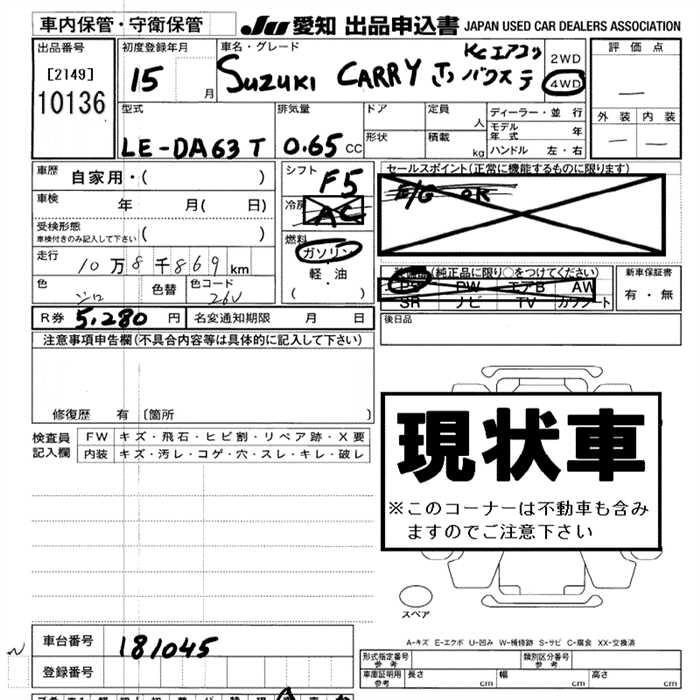 車内保管・守衛保管 JU 愛知 出品申込書 JAPAN USED CAR DEALERS ASSOCIATION
出品番号
[2149]
10136
初度登録年月
15 月
車名・グレード
SUZUKI CARRY
KCエアコン
2WD
4WD
評価点
—
外装 内装
— —
型式
LE-DA63T
排気量
0.65 CC
ドア
形状
定員 人
積載 kg
ディーラー・並行
モデル年式 年
ハンドル 左・右
車歴 自家用・( )
車検 年 月( 日)
受検形態
車検付きのみ記入して下さい ( )
走行 10万8千869km
色 シロ 色替 色コード 26U
シフト F5
冷房 AC
燃料
ガソリン
軽・油
( )
セールスポイント(正常に機能するものに限ります)
E/G OK
(純正品に限り○をつけてください)
PS PW エアB AW
SR ナビ TV カワシート
新車保証書
有・無
R券 5,280円 名変通知期限 月 日
後日品
注意事項申告欄(不具合内容等は具体的に記入して下さい)
修復歴 有 〔箇所 〕
検査員記入欄
FW キズ・飛石・ヒビ割・リペア跡・X要
内装 キズ・汚レ・コゲ・穴・スレ・キレ・破レ
現状車
※このコーナーは不動車も含み
ますのでご注意下さい
スペア
A-キズ E-エクボ U-凹み W-補修跡 S-サビ C-腐食 XX-交換済
車台番号 181045
登録番号
形式指定番号参考
類別区分番号参考
車庫証明用参考 長さ cm 幅 cm 高さ cm